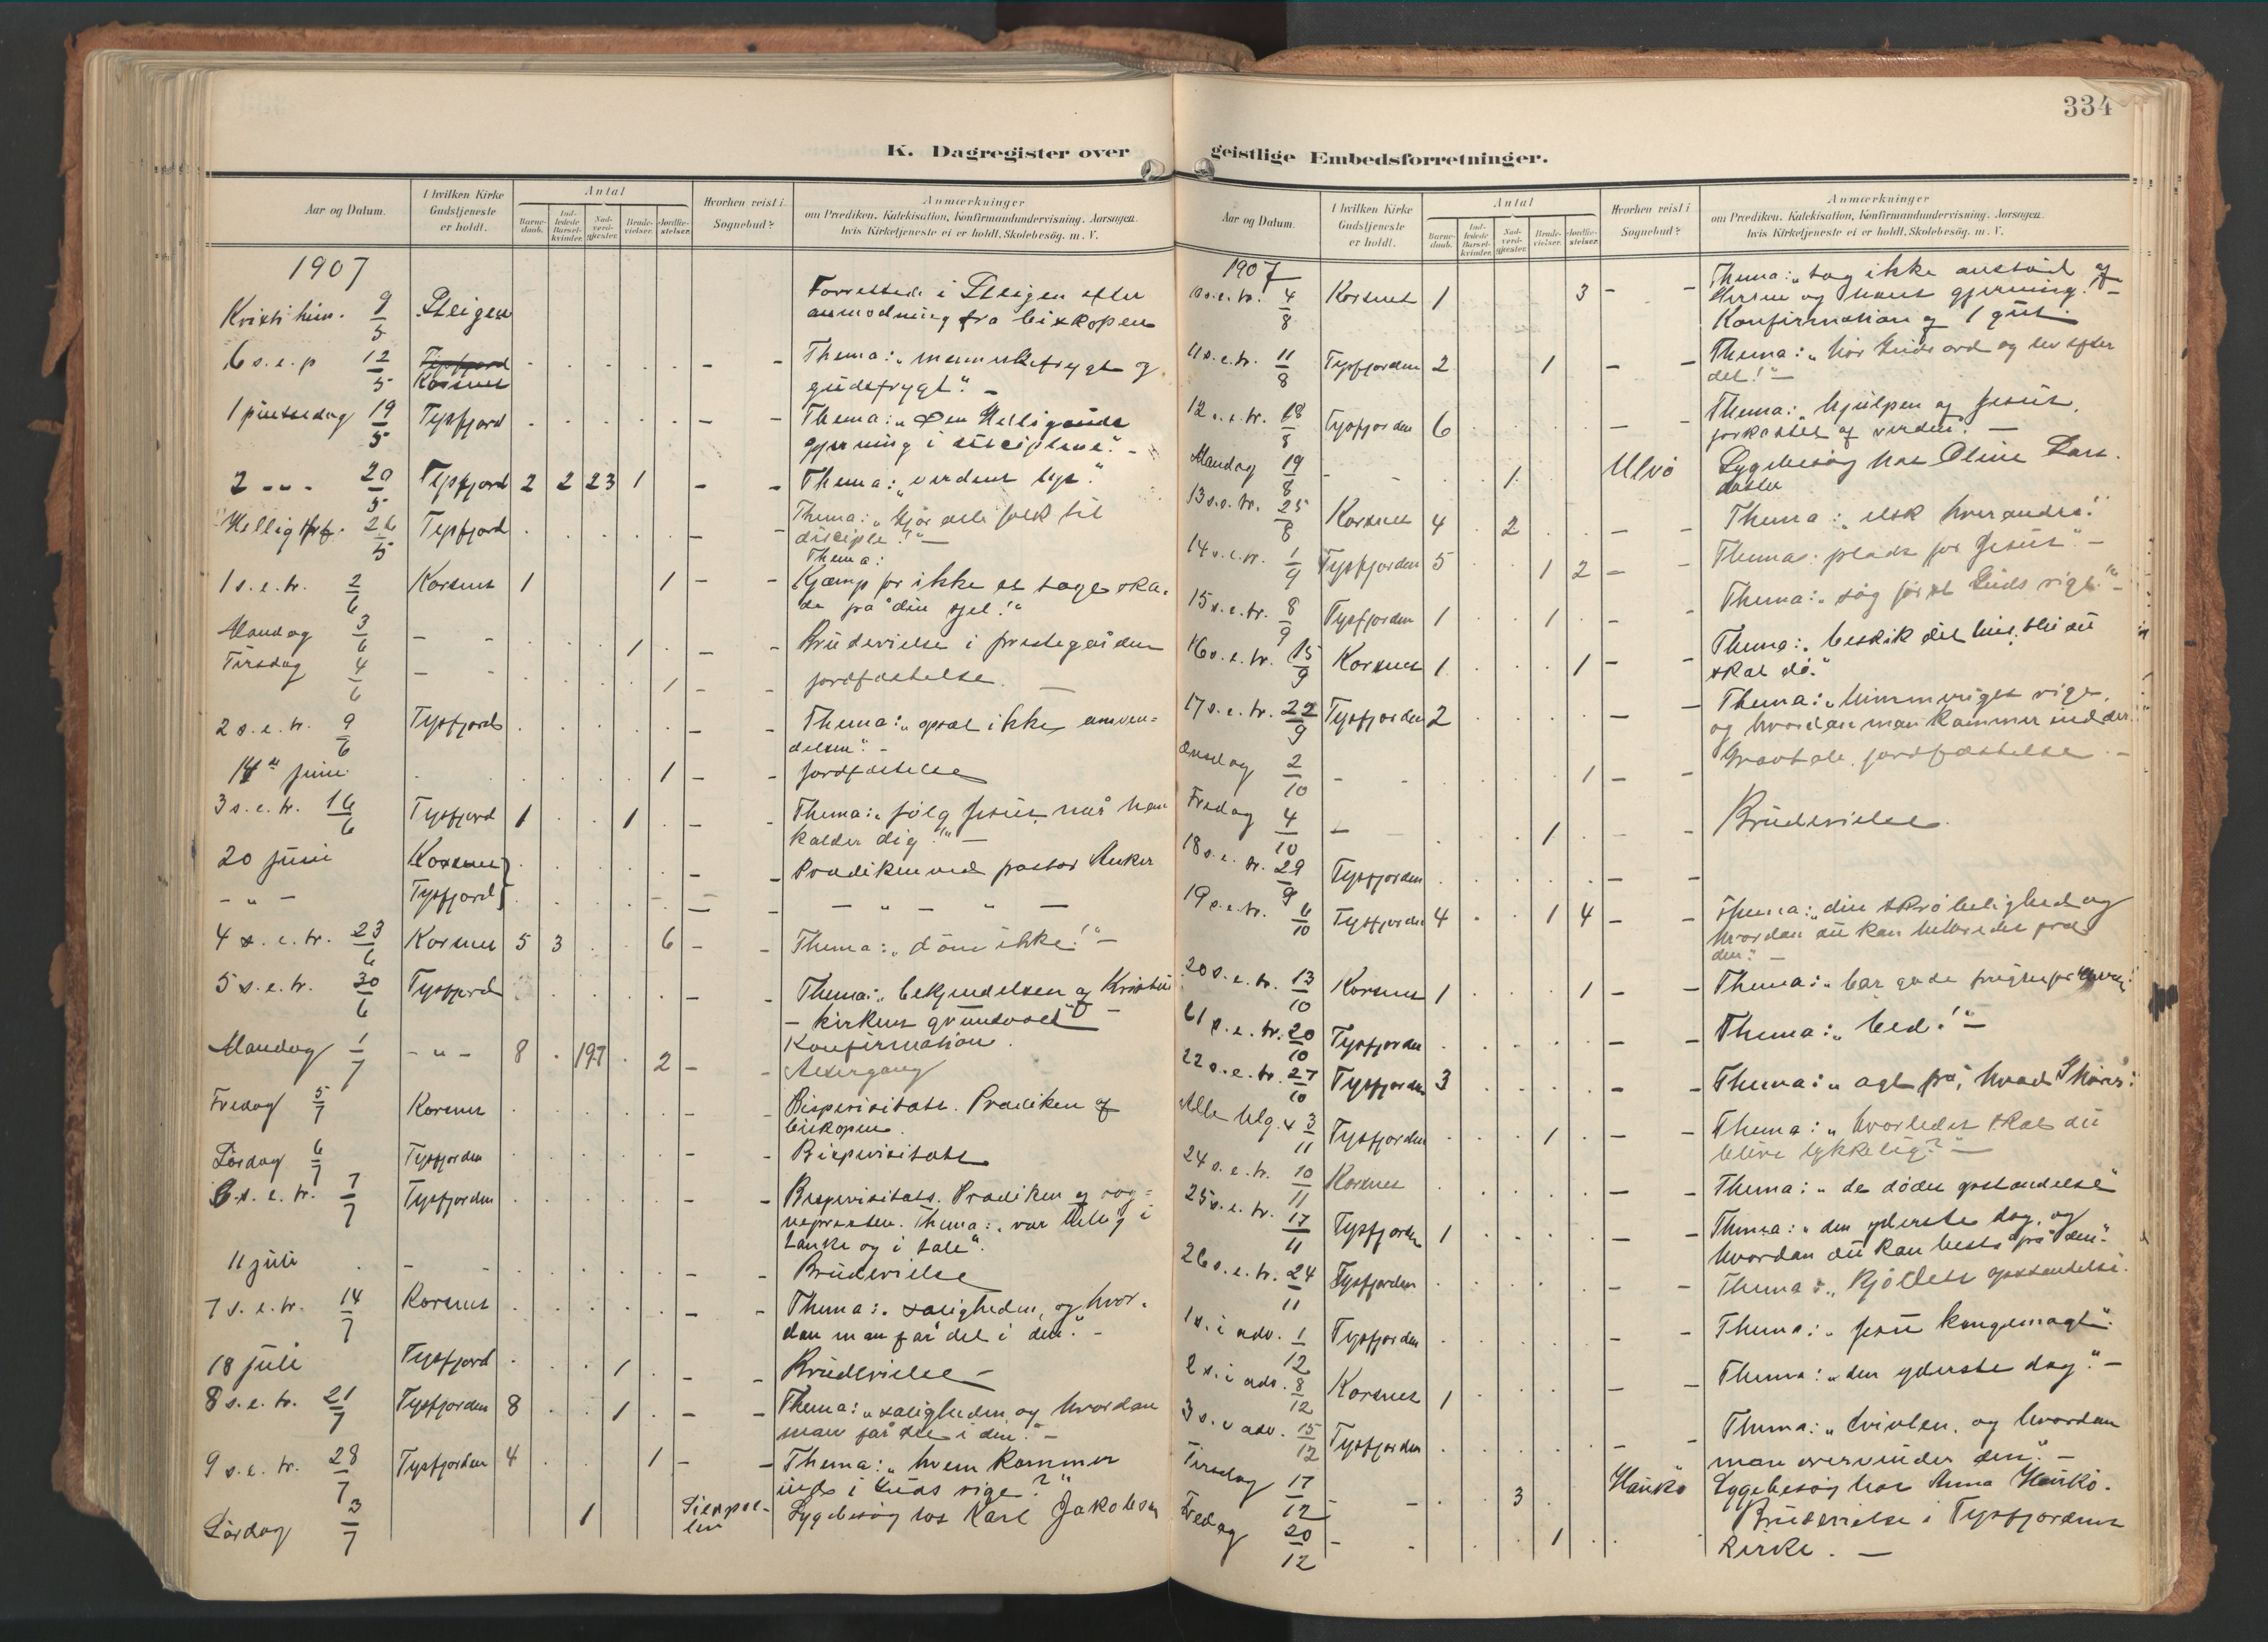 334
K. Dagregister over
Aar og Datum.
I hvilken Kirke
Gudstjeneste
er holdt.
Antal
Barne-
daab.
Ind-
ledede
Barsel-
kvinder.
Nad-
verd-
gjæster.
Brude-
vielser.
Jordfæ-
stelser.
Hvorhen reist i
Sognebud?
Anmærkninger
om Prædiken. Katekisation, Konfirmandundervisning. Aarsagen.
hvis Kirketjeneste ei er holdt. Skolebesøg. m. V.
1907
Kristi him. 9/5 Steigen Forrettede i Steigen efter
anmodning fra biskopen
6 s. e. p 12/5 Tysfjord Korsnes . . . . . - - Thema: „menneskefrygt og
gudsfrygt". -
1 pinsedag 19/5 Tysfjord . . . . . - - Thema: „Den Helligånds
gjerning i disciplene". -
2 - " - 20/5 Tysfjord 2 2 23 1 - - Thema: „verdens lys".
Hellig tref. 26/5 Tysfjord . . . . . - - Thema: „Gjør alle folk til
disciple!" -
Thema:
1 s. e. tr. 2/6 Korsnes 1 1 - - Kjæmp for ikke at tage ska-
de på din sjel!"
Mandag 3/6 - - . . . 1 - - Brudevielse i prestegården
Tirsdag 4/6 - - . . . . 1 - - jordfæstelse. -
2 s. e. tr. 9/6 Tysfjord . . . . . - - Thema: „opsæt ikke omven-
delsen". -
14de juni . . . . . 1 - - Jordfæstelse
3 s. e. tr. 16/6 Tysfjord 1 . . 1 . - - Thema: „følg Jesus, når han
kalder dig!" -
20 juni Korsnes } . . . . . - - Prædiken ved pastor Anker
- " - Tysfjord } . . . . - - - - " - " -
4 s. e. tr. 23/6 Korsnes 5 3 . . 6 - - Thema: „døm ikke!" -
5 s. e. tr. 30/6 Tysfjord . . . . . - - Thema: „bekjendelsen af Kristus
- kirkens grundvold" -
Konfirmation.
Mandag 1/7 - " - 8 . 197 . 2 - - Altergang
Fredag 5/7 Korsnes . . . . . - - Bispevisitats. Prædiken af
biskopen.
Lørdag 6/7 Tysfjorden . . . . . - - Bispevisitats
6 s. e. tr. 7/7 Tysfjorden . . . . . - - Bispevisitats. Prædiken af sog-
nepresten. Thema: „vær hellig i
tanke og i tale".
11 juli . - - . . . . - - Brudevielse
7 s. e. tr. 14/7 Korsnes . . . . . - - Thema: „saligheden, og hvor-
dan man får del i den". -
18 juli Tysfjord . . . 1 . - - Brudevielse -
8 s. e. tr. 21/7 Tysfjorden 8 . . 1 . - - Thema: „saligheden, og hvordan
man får del i den". -
9 s. e. tr. 28/7 Tysfjorden 4 . . . 1 - - Thema: „hvem kommer
ind i Guds rige?"
Lørdag 3/7 1 Sygebesøg hos Karl Jakobsen
geistlige Embedsforretninger.
Aar og Datum.
I hvilken Kirke
Gudstjeneste
er holdt.
Antal
Barne-
daab.
Ind-
ledede
Barsel-
kvinder.
Nad-
verd-
gjæster.
Brude-
vielser.
Jordfæ-
stelser.
Hvorhen reist i
Sognebud?
Anmærkninger
om Prædiken. Katekisation, Konfirmandundervisning. Aarsagen.
hvis Kirketjeneste ei er holdt. Skolebesøg. m. V.
1907
10 s. e. tr. 4/8 Korsnes 1 3 - - Thema: „tag ikke anstød af
Herren og hans gjerning." -
Konfirmation af 1 gut.
11 s. e. tr. 11/8 Tysfjorden 2 1 - - Thema: „hør Guds ord og lev efter
det!" -
12 s. e. tr. 18/8 Tysfjorden 6 . . . . - - Thema: „hjulpen af Jesus,
forkastet af verden". -
Mandag 19/8 - - . . 1 . . Ulvø Sygebesøg hos Oline Lars-
datter
13 s. e. tr. 25/8 Korsnes 4 . 2 . . - - Thema: „elsk hverandre!"
14 s. e. tr. 1/9 Tysfjorden 5 . . 1 2 - - Thema: plads for Jesus". -
15 s. e. tr. 8/9 Tysfjorden 1 . . 1 . - Thema: „søg først Guds rige!" -
16 s. e. tr. 15/9 Korsnes 1 . . . 1 - - Thema: „beskik dit hus, thi du
skal dø."
17 s. e. tr. 22/9 Tysfjorden 2 . . . . - - Thema: „himmeriges rige,
og hvordan man kommer ind der.
Onsdag 2/10 - - . . . . 1 - - Gravtale, jordfæstelse. -
Fredag 4/10 - - . . . 1 . - - Brudevielse.
18 s. e. tr. 29/9 Tysfjorden . . . . . - -
19 s. e. tr. 6/10 Tysfjorden 4 . . 1 4 - - Thema: „din skrøbelighed og
hvordan du kan helbredes fra
den". -
20 s. e. tr. 13/10 Korsnes 1 . . . 1 - - Thema: „bær gode frugter
21 s. e. tr. 20/10 Tysfjorden . . . . . - - Thema: „bed!" -
22 s. e. tr. 27/10 Tysfjorden 3 . . . . - - Thema: „agt på, hvad I hører!
Alle helg. 3/11 Tysfjorden . . . 1 . - - Thema: „hvorledes skal du
blive lykkelig?" -
24 s. e. tr. 10/11 Korsnes . . . . . - - Thema: „de dødes opstandelse"
25 s. e. tr. 17/11 Tysfjorden 1 . . . . - - Thema: „den yderste dag, og
hvordan du kan bestå på den".
26 s. e. tr. 24/11 Tysfjorden . . . . . - - Thema: „Kjødets opstandelse.
1 s. i adv. 1/12 Tysfjorden . . . . . - - Thema: „Jesu kongemagt".
2 s. i adv. 8/12 Korsnes 1 . . . . - - Thema: „den yderste dag". -
3 s. i adv. 15/12 Tysfjorden . . . . . - - Thema: „tvivlen, og hvordan
man overvinder den". -
Tirsdag 17/12 - - . . 3 . . Haukø Sygebesøg hos Anna Haukø.
Fredag 20/12 - - . . . 1 . . Brudevielse i Tysfjordens
kirke. -